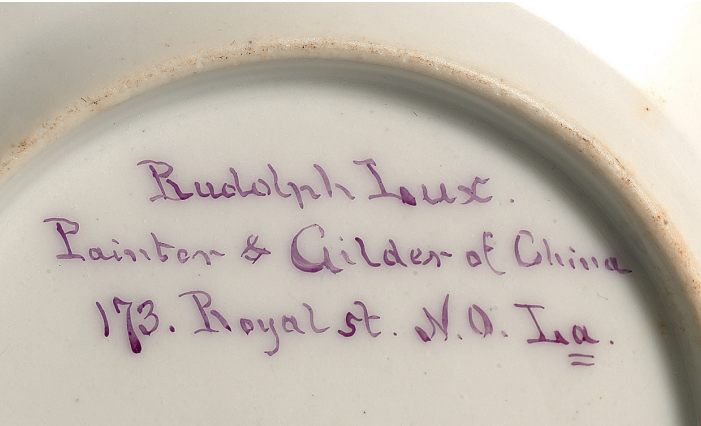 Rudolph Lux.
Painter & Gilder of China
173. Royal st. N.O. La.